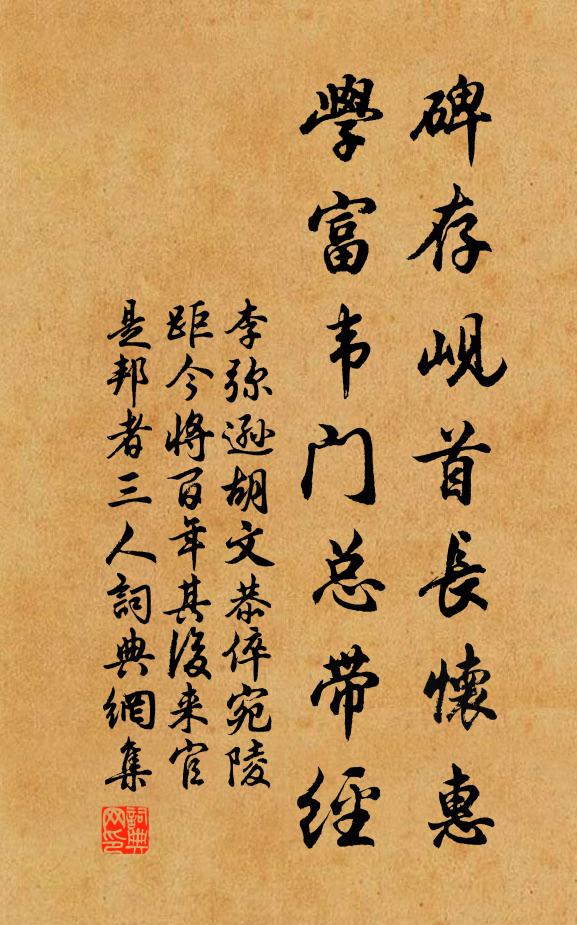 碑存岘首長懷惠
學富韦门总带經
李弥遜胡文恭倅宛陵
距今将百年其後来官
是邦者三人詞典網集
詞典
网印